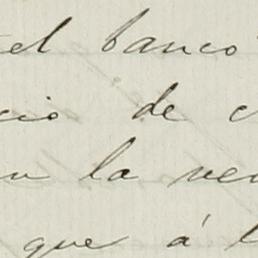 el banco
cio de c
la ve
que á l